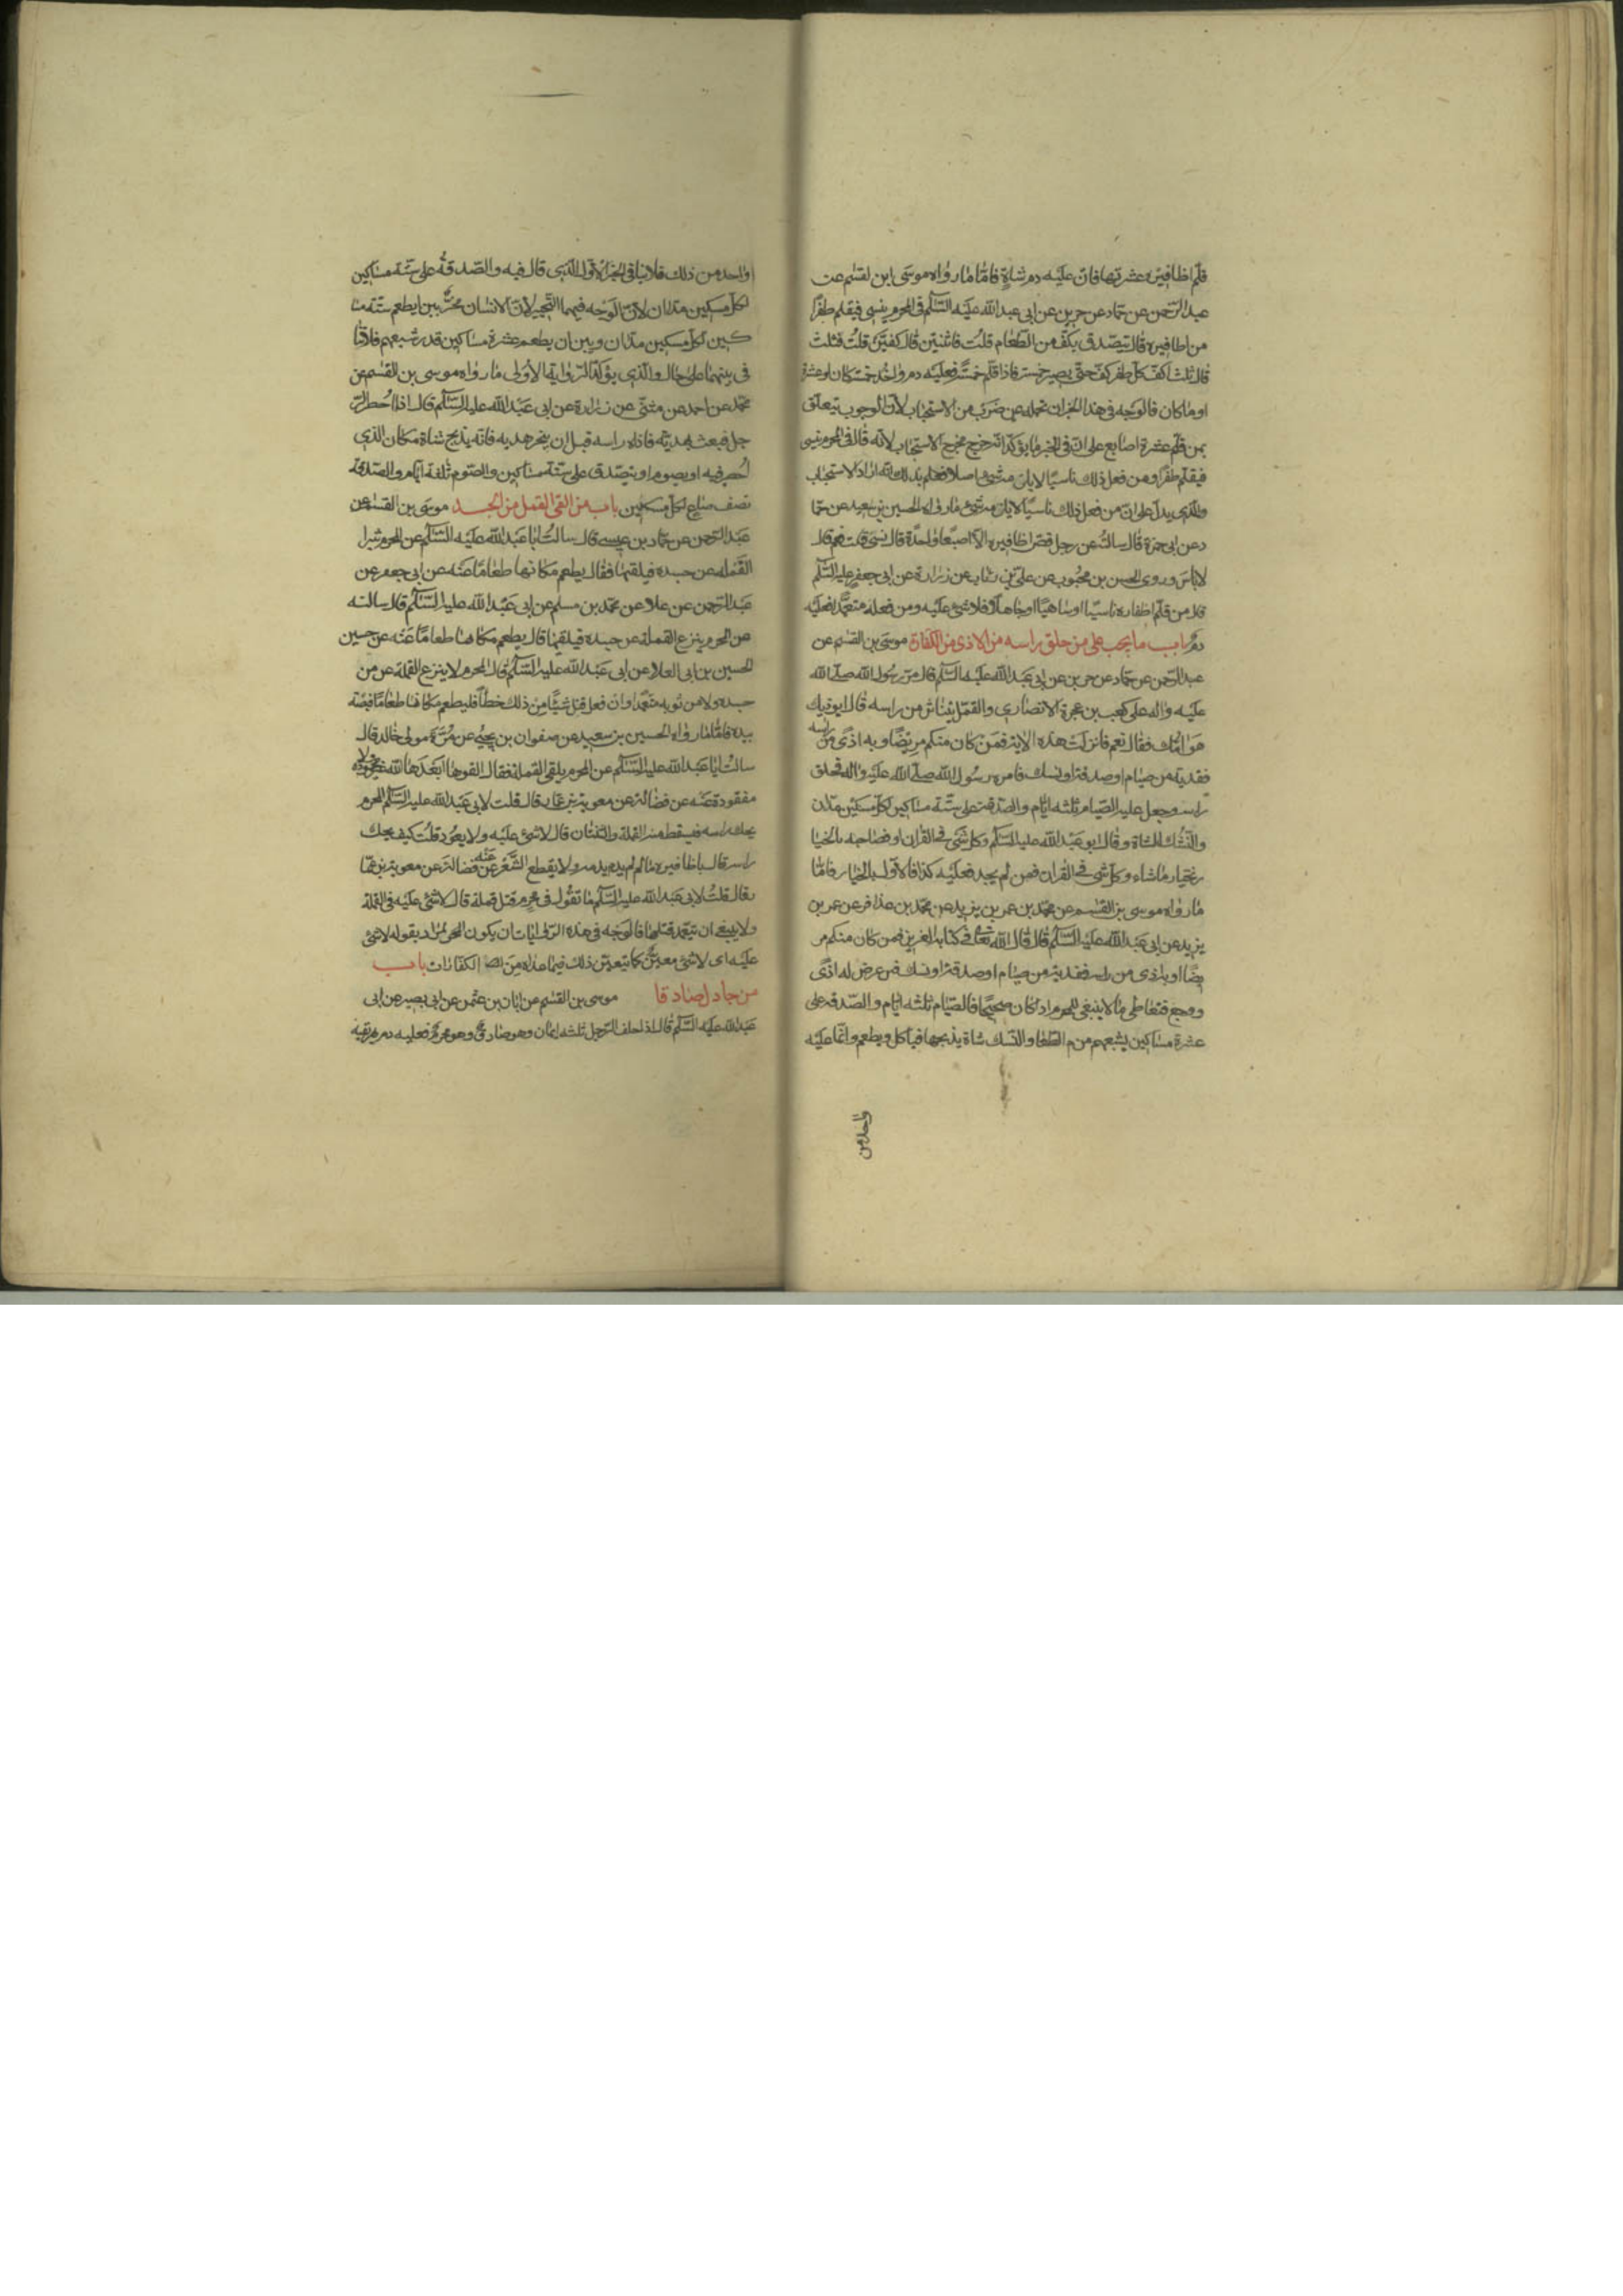 قلم اظافيره عشرتها فان عليه دم شاة فاما ما رواه موسى ابن لقسم عن
عبد الرحمن عن حماد عن حريز عن ابى عبد الله عليه السلم فى المحرم ينسى فيقلم ظفرا
من اظافيره قال يتصدق بكف من الطعام قلت فاثنتين قال كفين قلت فثلث
قال ثلث اكف كل ظفر كف حتى يصير خمسة فاذا قلم خمسة فعليه دم واحد خمسة كان او عشرة
او ما كان فالوجه فى هذا الخبر ان نحمله على ضرب من الاستحباب لان الوجوب يتعلق
بمن قلم عشرة اصابع على ان فى الخبر ما يؤكد انه خرج مخرج الاستحباب لانه قال فى المحرم ينسى
فيقلم ظفرا ومن فعل ذلك ناسيا لا يلزمه شئ اصلا فعلم بذلك انه اراد الاستحباب
والذى يدل على ان من فعل ذلك ناسيا لا يلزمه شئ ما رواه الحسين بن سعيد عن حما
د عن ابى حمزة قال سالته عن رجل قص اظافيره الا اصبعا واحدة قال نسى قلت نعم قال
لا باس وروى الحسن بن محبوب عن على بن رئاب عن زرارة عن ابى جعفر عليه السلم
قال من قلم اظفاره ناسيا او ساهيا او جاهلا فلا شئ عليه ومن فعله متعمدا فعليه
دم باب ما يجب على من حلق راسه من الاذى من الكفارة موسى بن القسم عن
عبد الرحمن عن حماد عن حريز عن ابى عبد الله عليه السلم قال مر رسول الله صلى الله
عليه واله على كعب بن عجرة الانصارى والقمل يتناثر من راسه قال ايوذيك
هوامك فقال نعم فانزلت هذه الاية فمن كان منكم مريضا او به اذى من راسه
ففدية من صيام او صدقة او نسك فامره رسول الله صلى الله عليه واله فحلق
راسه وجعل عليه الصيام ثلثه ايام والصدقة على ستة مساكين لكل مسكين مدان
والنسك الشاة وقال ابو عبد الله عليه السلم وكل شئ فى القران او فصاحبه بالخيا
ر يختار ما شاء وكل شئ فى القران فمن لم يجد فعليه كذا فالاول بالخيار فاما
ما رواه موسى بن القسم عن محمد بن عمر بن يزيد عن محمد بن عذافر عن عمر بن
يزيد عن ابى عبد الله عليه السلم قال قال الله تعالى فى كتابه العزيز فمن كان منكم مر
يضا او به اذى من راسه ففدية من صيام او صدقة او نسك فمن عرض له اذى
ووجع فتعاطى ما لا ينبغى للمحرم اذا كان صحيحا فالصيام ثلثه ايام والصدقه على
عشرة مساكين يشبعهم من الطعام والنسك شاة يذبحها فياكل ويطعم وانما عليه
واحد من
واحد من ذلك فلا ينافى الخبر الاول الذى قال فيه والصدقة على ستة مساكين
لكل مسكين مدان لان الوجه فيهما التخيير لان الانسان مخير بين ان يطعم ستة مسا
كين لكل مسكين مدان وبين ان يطعم عشرة مساكين قدر شبعهم فلا تنا
فى بينهما على حال والذى يؤكد الرواية الاولى ما رواه موسى بن القسم عن
محمد عن احمد عن مثنى عن زرارة عن ابى عبد الله عليه السلم قال اذا احصر الر
جل فبعث بهديه فاذاه راسه قبل ان ينحر هديه فانه يذبح شاة مكان الذى
احصر فيه او يصوم او يتصدق على ستة مساكين والصوم ثلثة ايام والصدقة
نصف صاع لكل مسكين باب من القى القمل من الجسد موسى بن القسم عن
عبد الرحمن عن حماد بن عيسى قال سالت ابا عبد الله عليه السلم عن المحرم يبين
القمله عن جسده فيلقيها فقال يطعم مكانها طعاما عنه عن ابى جعفر عن
عبد الرحمن عن علا عن محمد بن مسلم عن ابى عبد الله عليه السلم قال سالته
عن المحرم ينزع القملة عن جسده فيلقيها قال يطعم مكانها طعاما عنه عن حسين
الحسين بن ابى العلا عن ابى عبد الله عليه السلم قال المحرم لا ينزع القملة عن من
جسده ولا من ثوبه متعمدا وان فعل قتل شيئا من ذلك خطأ فليطعم مكانها طعاما قبضة
بيده فاما ما رواه الحسين بن سعيد عن صفوان بن يحيى عن مرة مولى خالد قال
سالت ابا عبد الله عليه السلم عن المحرم يلقى القملة فقال القوها ابعدها الله غير محمودة ولا
مفقودة عنه عن فضالة عن معوية بن عمار قال قلت لابى عبد الله عليه السلم المحرم
يحك راسه فيسقط منه القملة والثنتان قال لا شئ عليه ولا يعود قلت كيف يحك
راسه قال باظافيره ما لم يدم ولا يقطع الشعر عنه عن فضالة عن معوية بن عما
ر قال قلت لابى عبد الله عليه السلم ما تقول فى محرم قتل قملة قال لا شئ عليه فى القملة
ولا ينبغى ان يتعمد قتلها فالوجه فى هذه الروايات ان يكون المراد بقوله لا شئ
عليه اى لا شئ معين كما يتعين ذلك فيما عداه من الكفارات باب
من جادل صادقا موسى بن القسم عن ابان بن عثمن عن ابى بصير عن ابى
عبد الله عليه السلم قال اذا حلف الرجل ثلثه ايمان وهو صادق وهو محرم فعليه دم يهريقه